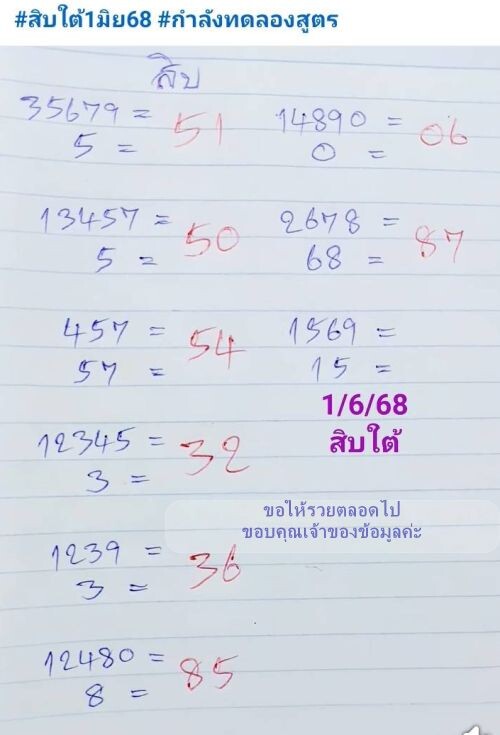 #สิบใต้1มิย68 #กำลังทดลองสูตร
สิบ
35679 = 51
5 =
13457 = 50
5 =
457 = 54
57 =
12345 = 32
3 =
1239 = 36
3 =
12480 = 85
8 =
14890 = 06
0 =
2678 = 87
68 =
1569 =
15 =
1/6/68
สิบใต้
ขอให้รวยตลอดไป
ขอบคุณเจ้าของข้อมูลค่ะ